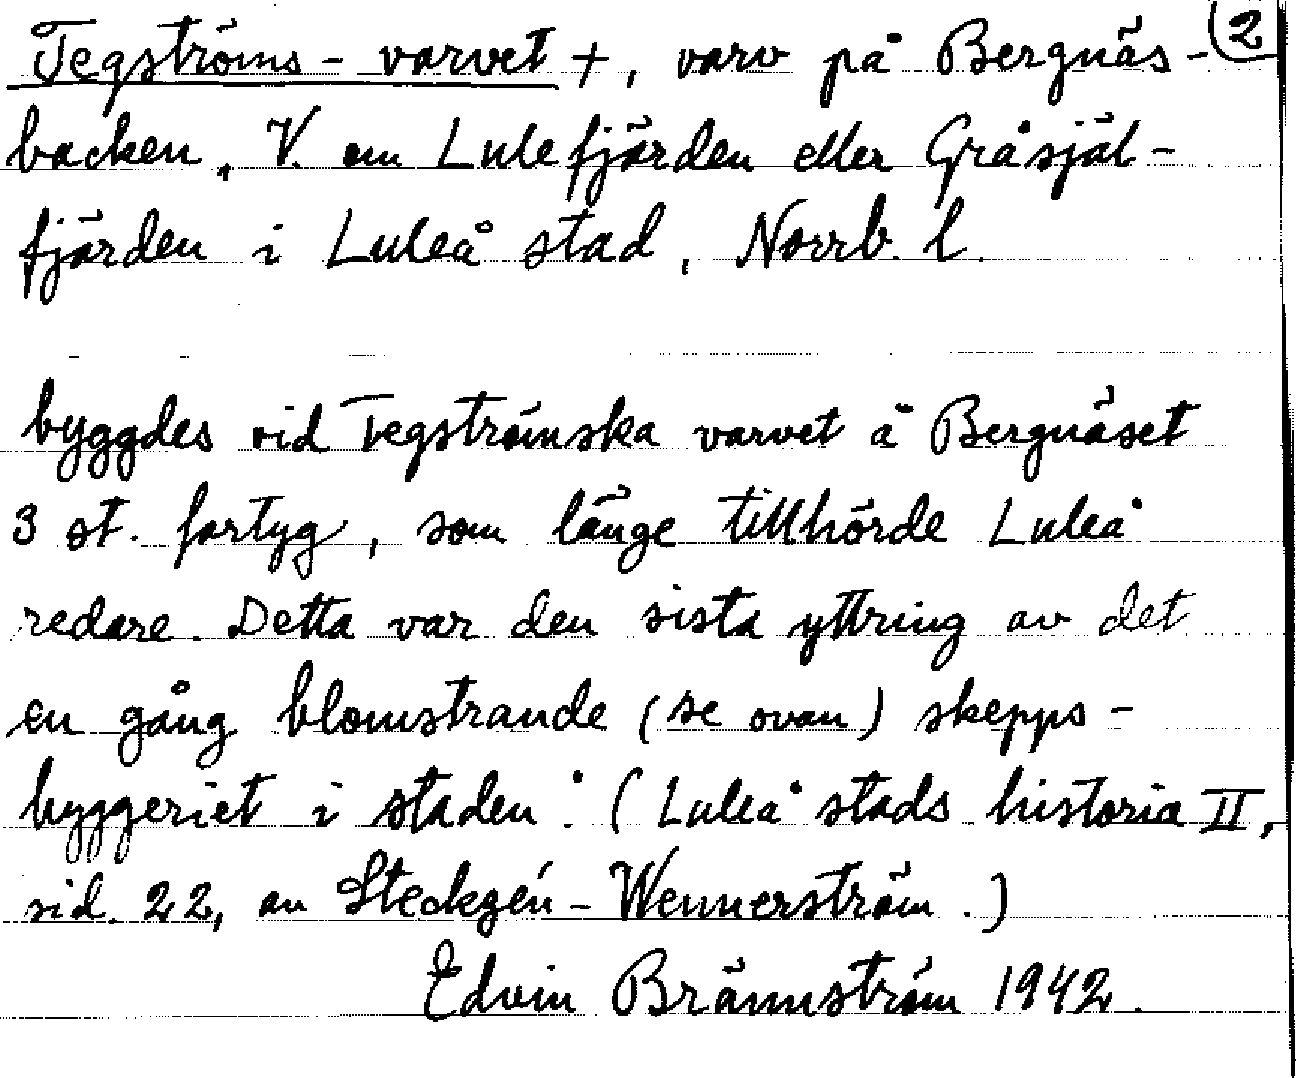 Tegströms-varvet +, varv på Bergnäs- 2
backen, V. om Lulefjärden eller Gråsjäl-
fjärden i Luleå stad, Norrb. l.
byggdes vid Tegströmska varvet å Bergnäset
3 st. fartyg, som länge tillhörde Luleå
redare. Detta var den sista yttring av det
en gång blomstrande (se ovan) skepps-
byggeriet i staden". (Luleå stads historia II,
sid. 22, av Steckzén-Wennerström.)
Edvin Brännström 1942.